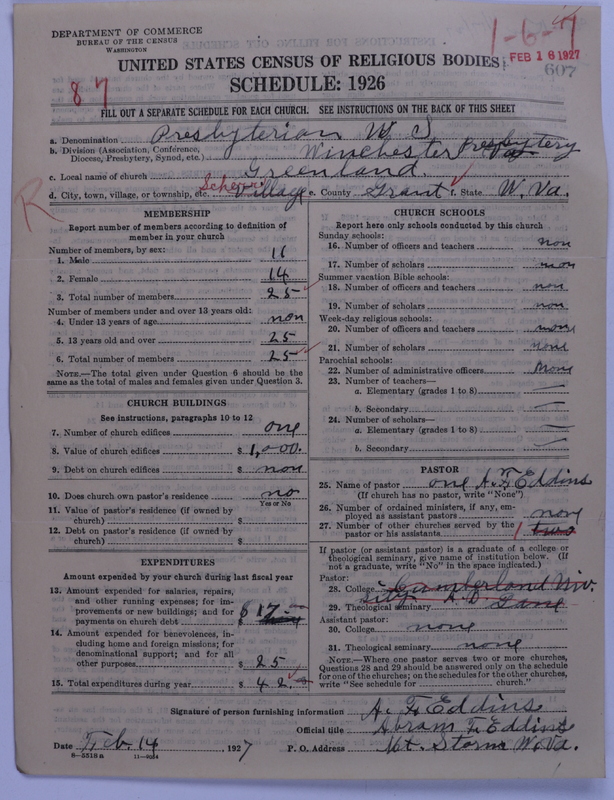 1-6-47
DEPARTMENT OF COMMERCE
BUREAU OF THE CENSUS
WASHINGTON
FEB 16 1927
607
UNITED STATES CENSUS OF RELIGIOUS BODIES
SCHEDULE: 1926
87
FILL OUT A SEPARATE SCHEDULE FOR EACH CHURCH. SEE INSTRUCTIONS ON THE BACK OF THIS SHEET
a. Denomination Presbyterian U S
b. Division (Association, Conference, Diocese, Presbytery, Synod, etc.) Winchester Presbytery
c. Local name of church Greenland.
d. City, town, village, or township, etc. Scherr village e. County Grant f. State W. Va.
R
MEMBERSHIP
Report number of members according to definition of
member in your church
Number of members, by sex:
1. Male 11
2. Female 14
3. Total number of members 25
Number of members under and over 13 years old:
4. Under 13 years of age non
5. 13 years old and over 25
6. Total number of members 25
NOTE.—The total given under Question 6 should be
same as the total of males and females given under Question 3.
CHURCH BUILDINGS
See instructions, paragraphs 10 to 12
7. Number of church edifices one
8. Value of church edifices $ 1,000.
9. Debt on church edifices $ non
10. Does church own pastor's residence no
Yes or No
11. Value of pastor's residence (if owned by
church) $
12. Debt on pastor's residence (if owned by
church) $
EXPENDITURES
Amount expended by your church during last fiscal year
13. Amount expended for salaries, repairs,
and other running expenses; for im-
provements or new buildings; and for
payments on church debt $ 17
14. Amount expended for benevolences,
including home and foreign missions; for
denominational support; and for all
other purposes $ 25
15. Total expenditures during year $ 42
CHURCH SCHOOLS
Report here only schools conducted by this church
Sunday schools:
16. Number of officers and teachers non
17. Number of scholars non
Summer vacation Bible schools:
18. Number of officers and teachers non
19. Number of scholars non
Week-day religious schools:
20. Number of officers and teachers none
21. Number of scholars none
Parochial schools:
22. Number of administrative officers None
23. Number of teachers—
a. Elementary (grades 1 to 8)
b. Secondary
24. Number of scholars—
a. Elementary (grades 1 to 8)
b. Secondary
PASTOR
25. Name of pastor one A. F. Eddins
(If church has no pastor, write "None")
26. Number of ordained ministers, if any, em-
ployed as assistant pastors none
27. Number of other churches served by the
pastor or his assistants 1 two
If pastor (or assistant pastor) is a graduate of a college or
theological seminary, give name of institution below. (If
not a graduate, write "No" in the space indicated.)
Pastor:
28. College Cumberland Univ.
29. Theological seminary
Assistant pastor:
30. College none
31. Theological seminary none
NOTE.—Where one pastor serves two or more churches,
Questions 28 and 29 should be answered only on the schedule
for one of the churches; on the schedules for the other churches,
write "See schedule for church."
Signature of person furnishing information A. F. Eddins
Official title Abram F. Eddins
Date Feb. 14 1927 P. O. Address Mt. Storm W. Va.
8-5518a 11-9054